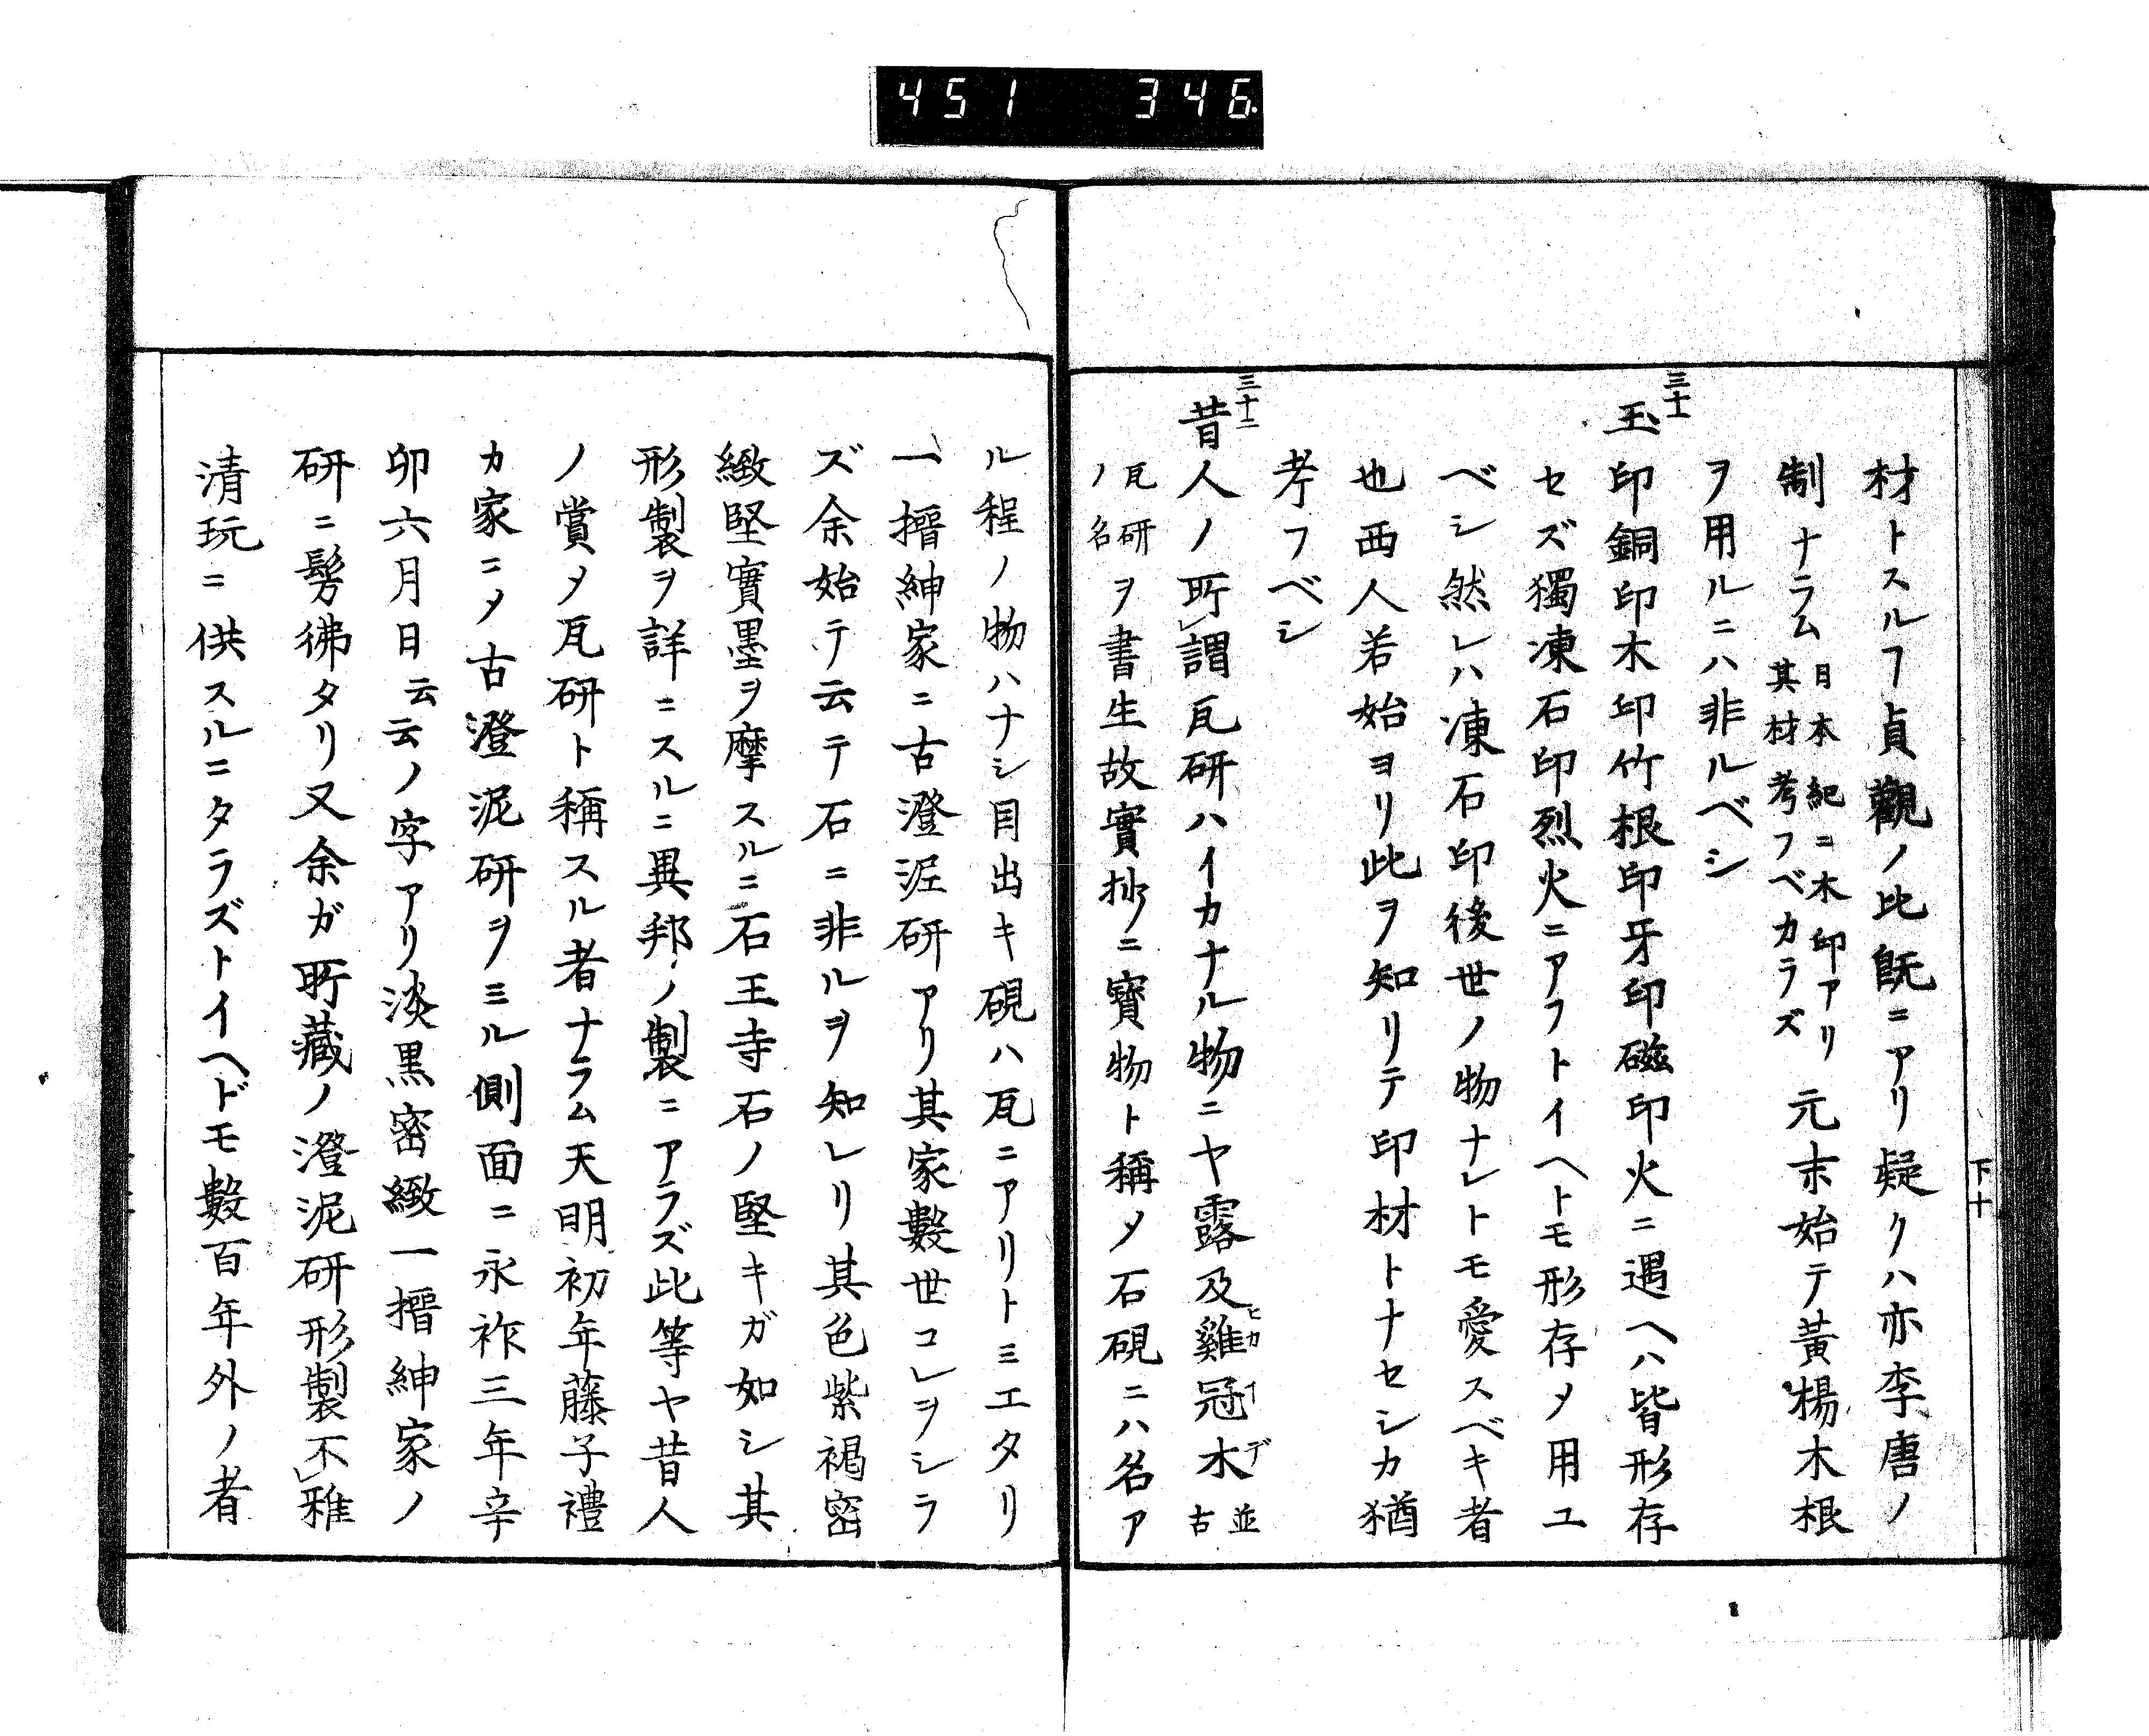 451 346
下十
材トスルヿ貞觀ノ比既ニアリ疑クハ亦李唐ノ
制ナラム日本紀ニ木印アリ其材考フベカラズ 元末始テ黃楊木根
ヲ用ルニハ非ルベシ
三十一
玉印銅印木印竹根印牙印磁印火ニ遇ヘハ皆形存
セズ獨凍石印烈火ニアフトイヘトモ形存メ用ユ
ベシ然レハ凍石印後世ノ物ナレトモ愛スベキ者
也西人若始ヨリ此ヲ知リテ印材トナセシカ猶
考フベシ
三十二
昔人ノ所謂瓦研ハイカナル物ニヤ露及雞冠木並古
ヒカイデ
瓦研ノ名ヲ書生故實抄ニ寶物ト稱メ石硯ニハ名ア
ル程ノ物ハナシ目出キ硯ハ瓦ニアリトミエタリ
一搢紳家ニ古澄泥研アリ其家數世コレヲシラ
ズ余始テ云テ石ニ非ルヲ知レリ其色紫褐密
緻堅實墨ヲ摩スルニ石王寺石ノ堅キガ如シ其
形製ヲ詳ニスルニ異邦ノ製ニアラズ此等ヤ昔人
ノ賞メ瓦研ト稱スル者ナラム天明初年藤子禮
カ家ニメ古澄泥研ヲミル側面ニ永祚三年辛
卯六月日云云ノ字アリ淡黒密緻一搢紳家ノ
研ニ髣彿タリ又余ガ所藏ノ澄泥研形製不雅
清玩ニ供スルニタラズトイヘドモ數百年外ノ者